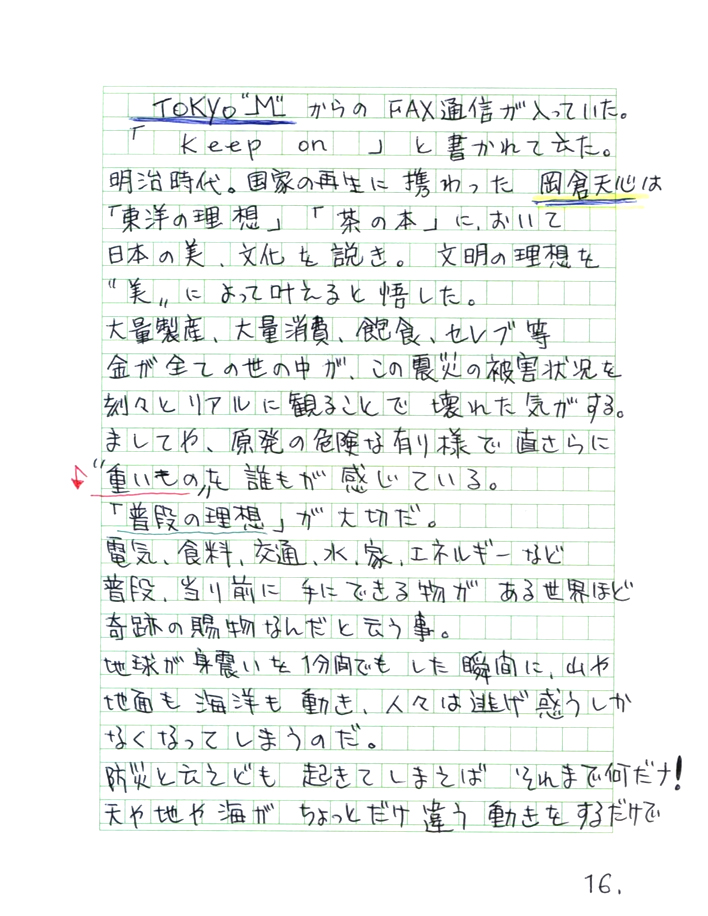 TOKYO "M" からの FAX通信が入っていた。
「 Keep on 」と書かれて云た。
明治時代。国家の再生に 携わった 岡倉天心は
「東洋の理想」「茶の本」に、おいて
日本の美、文化を説き。 文明の理想を
"美" に よって叶えると 悟した。
大量製産、大量消費、飽食、セレブ等
金が全ての世の中が、この震災の被害状況を
刻々とリアルに観ることで 壊れた気がする。
ましてや、原発の危険な有り様で 直さらに
"重いもの"を 誰もが 感じている。
「普段の理想」が 大切だ。
電気、食料、交通、水、家、エネルギーなど
普段、当り前に 手にできる物が ある世界ほど
奇跡の賜物なんだと云う事。
地球が身震いを 1分間でも した 瞬間に、山や
地面も 海洋も 動き、人々は 逃げ惑うしか
なくなってしまうのだ。
防災と云えども 起きてしまえば それまで何だナ!
天や地や海が ちょっとだけ 違う 動きをするだけで
16.